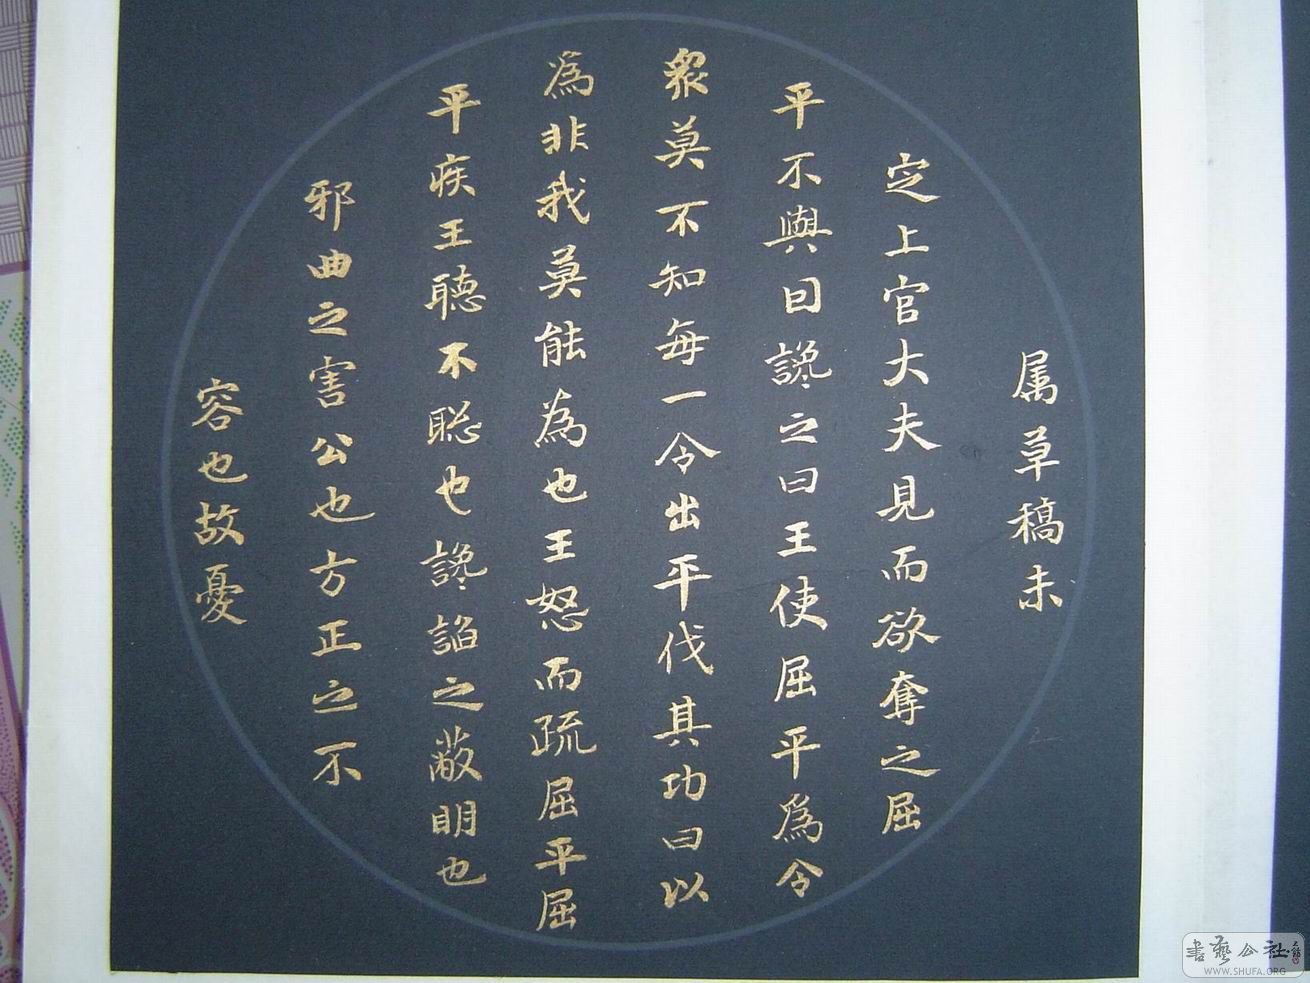 属草稿未
定上官大夫見而欲奪之屈
平不與因讒之曰王使屈平為令
衆莫不知每一令出平伐其功曰以
為非我莫能為也王怒而疏屈平屈
平疾王聽不聡也讒諂之蔽明也
邪曲之害公也方正之不
容也故憂
書藝公社
WWW.SHUFA.ORG